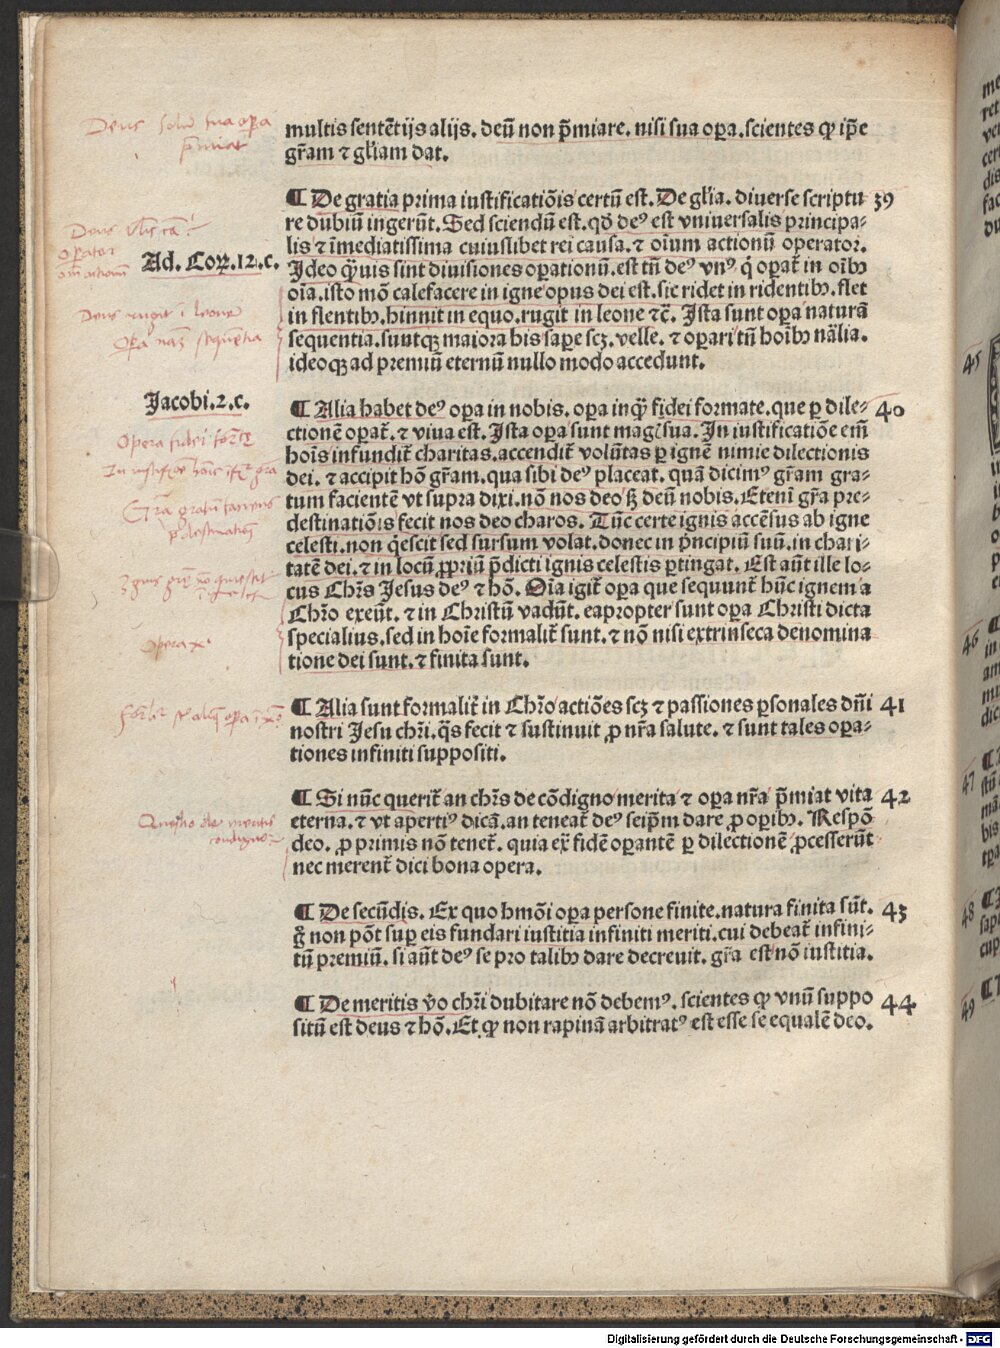 multis sentētijs alijs. deū non p̄miare. nisi sua oꝑa. scientes ꝙ ip̄e
gr̄am ⁊ gl̄iam dat.
¶ De gratia prima iustificatiōis certū est. De gl̄ia. diuerse scriptu 39
re dubiū ingerūt. Sed sciendū est. qd̄ deꝰ est vniuersalis principa⸗
lis ⁊ īmediatissima cuiuslibet rei causa. ⁊ oīum actionū operator.
Ad. Coꝝ. 12. c.
Ideo q̄uis sint diuisiones oꝑationū. est tn̄ deꝰ vnꝰ q̇ oꝑat̄ in oībꝫ
oīa. isto mō calefacere in igne opus dei est. sic ridet in ridentibꝫ. flet
in flentibꝫ. hinnit in equo. rugit in leone ⁊c̄. Ista sunt oꝑa naturā
sequentia. suntqꝫ maiora his saꝑe scꝫ. velle. ⁊ oꝑari tn̄ hoībꝫ nālia.
ideoqꝫ ad premiū eternū nullo modo accedunt.
Jacobi. 2. c.
¶ Alia habet deꝰ oꝑa in nobis. oꝑa inq̄ fidei formate. que ꝑ dile⸗ 40
ctionē oꝑat̄. ⁊ viua est. Ista oꝑa sunt maḡ sua. In iustificatiōe em̄
hoīs infundit̄ charitas. accendit̄ volūtas ꝑ ignē nimie dilectionis
dei. ⁊ accipit hō gr̄am. qua sibi deꝰ placeat. quā dicimꝰ gr̄am gra⸗
tum facientē vt supra dixi. nō nos deo sꝫ deū nobis. Etenī gr̄a pre⸗
destinatiōis fecit nos deo charos. Tūc certe ignis accēsus ab igne
celesti. non q̇escit sed sursum volat. donec in pͥncipiū suū. in chari⸗
tatē dei. ⁊ in locū ꝓpriū p̄dicti ignis celestis ꝑtingat. Est aūt ille lo⸗
cus Chr̄s Jesus deꝰ ⁊ hō. Oīa igit̄ oꝑa que sequunt̄ hūc ignem a
Chr̄o exeūt. ⁊ in Christū vadūt. eapropter sunt oꝑa Christi dicta
specialius. sed in hoīe formalit̄ sunt. ⁊ nō nisi extrinseca denomina
tione dei sunt. ⁊ finita sunt.
¶ Alia sunt formalit̄ in Chr̄o actiōes scꝫ ⁊ passiones ꝑsonales dn̄i 41
nostri Jesu chr̄i. q̄s fecit ⁊ sustinuit ꝓ nr̄a salute. ⁊ sunt tales oꝑa⸗
tiones infiniti suppositi.
¶ Si nūc querit̄ an chr̄s de cōdigno merita ⁊ oꝑa nr̄a p̄miat vita 42
eterna. ⁊ vt apertiꝰ dicā. an teneat̄ deꝰ seip̄m dare ꝓ oꝑibꝫ. Respō
deo. ꝓ primis nō tenet̄. quia ex fidē oꝑantē ꝑ dilectionē ꝓcesserūt
nec merent̄ dici bona opera.
¶ De secūdis. Ex quo hmōi oꝑa persone finite. natura finita sūt. 43
g̊ non pōt suꝑ eis fundari iustitia infiniti meriti. cui debeat̄ infini⸗
tū premiū. si aūt deꝰ se pro talibꝫ dare decreuit. gr̄a est nō iustitia.
¶ De meritis v̄o chr̄i dubitare nō debemꝰ. scientes ꝙ vnū suppo 44
sitū est deus ⁊ hō. Et ꝙ non rapinā arbitratꝰ est esse se equalē deo.
45
46
47
48
49
Digitalisierung gefördert durch die Deutsche Forschungsgemeinschaft - DFG